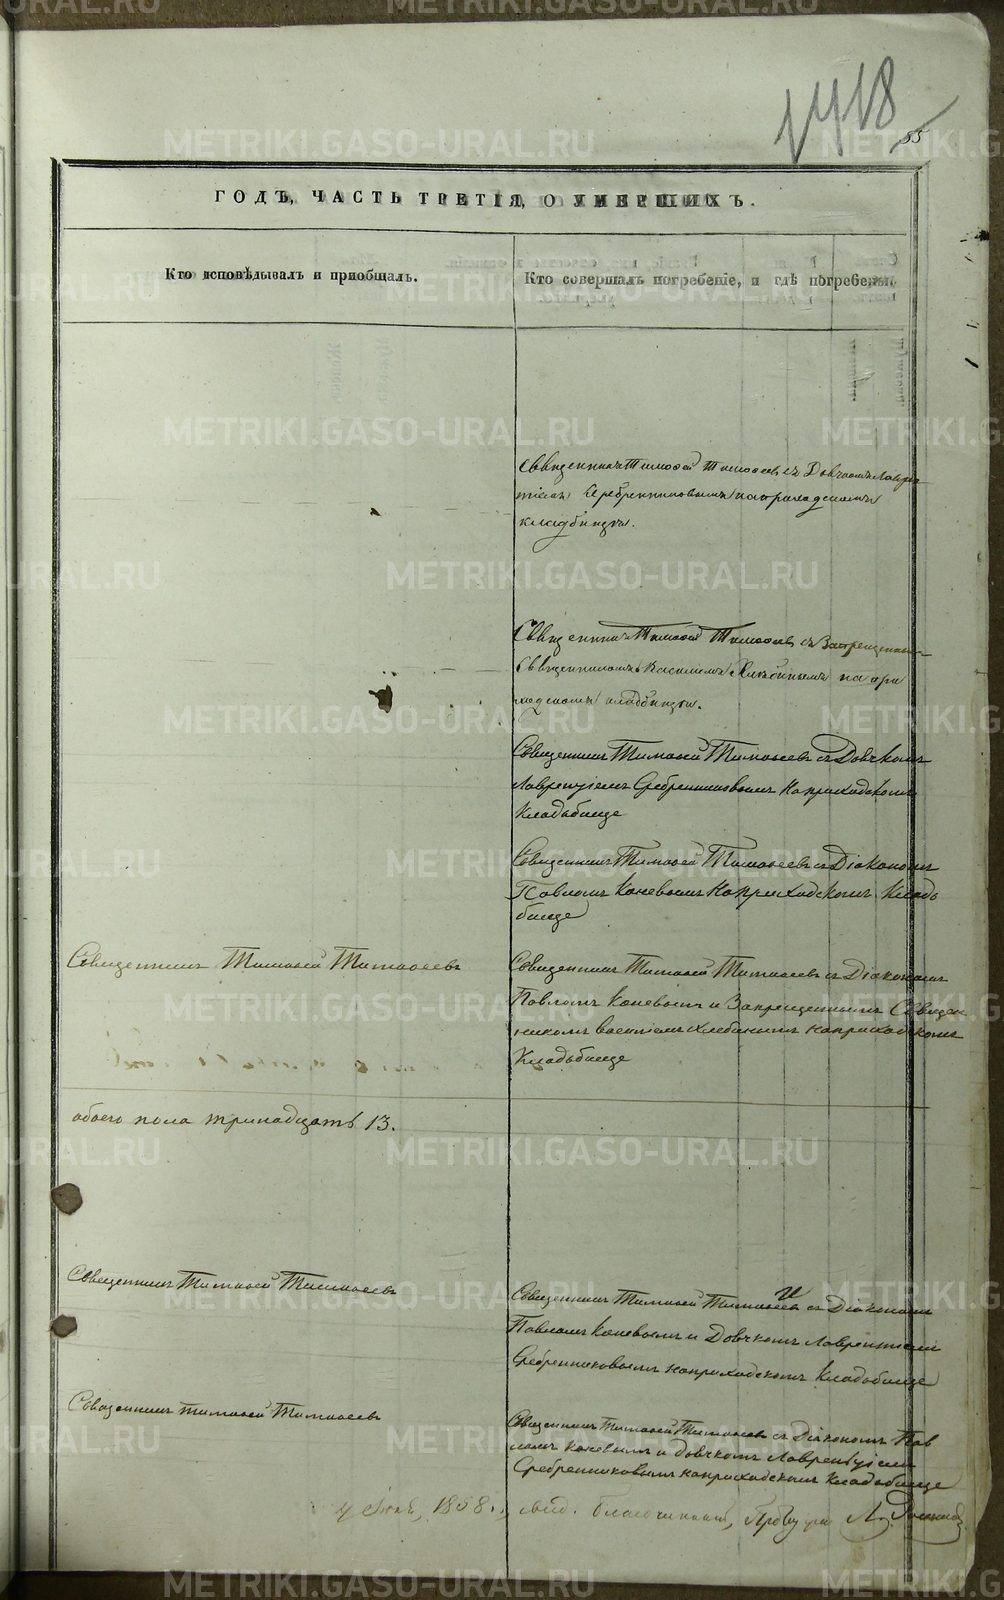 1418
55
ГОДЪ, ЧАСТЬ ТРЕТІЯ, О УМЕРШИХЪ.
Кто исповѣдывалъ и приобщалъ.
Кто совершалъ погребеніе, и гдѣ погребены.
Священникъ Тимоѳей Тимоѳеевъ съ Дьячкомъ Лаврен
тіемъ Серебренниковымъ на приходскомъ
кладбищѣ.
Священникъ Тимоѳей Тимоѳеевъ съ Запрещеннымъ
Священникомъ Василіемъ Хлѣбинымъ на при
ходскомъ кладбищѣ.
Священникъ Тимоѳей Тимоѳеевъ съ Дьячкомъ
Лаврентіемъ Сребренниковымъ на приходскомъ
Кладьбище
Священникъ Тимоѳей Тимоѳеевъ съ Діакономъ
Павломъ Коневымъ на приходскомъ Кладь
бище
Священникъ Тимоѳей Тимоѳеевъ
Священникъ Тимоѳей Тимоѳеевъ съ Діакономъ
Павломъ Коневымъ и Запрещеннымъ Священ
никомъ Василіемъ Хлебинымъ на приходскомъ
Кладьбище
обоего пола тринадцать 13.
Священникъ Тимоѳей Тимоѳеевъ
Священникъ Тимоѳей Тимоѳеевъ съ Діакономъ
Павломъ Коневымъ и Дьячкомъ Лаврентіемъ
Сребренниковымъ на приходскомъ Кладьбище
Священникъ Тимоѳей Тимоѳеевъ
Священникъ Тимоѳей Тимоѳеевъ съ Діакономъ Пав
ломъ Коневымъ и Дьячкомъ Лаврентіемъ
Сребренниковымъ на приходскомъ Кладьбище
1858. благочинный,
METRIKI.GASO-URAL.RU